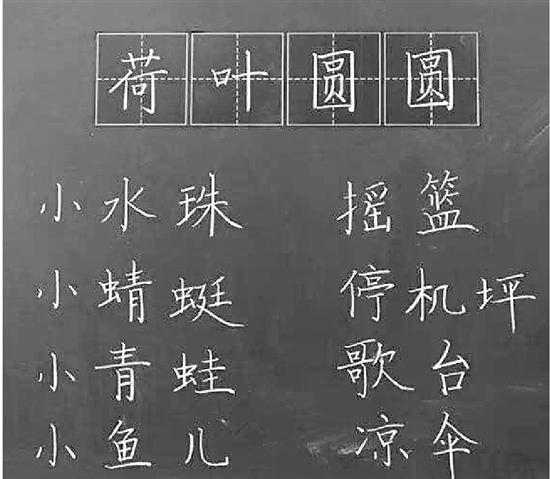 荷叶圆圆
小水珠 摇篮
小蜻蜓 停机坪
小青蛙 歌台
小鱼儿 凉伞